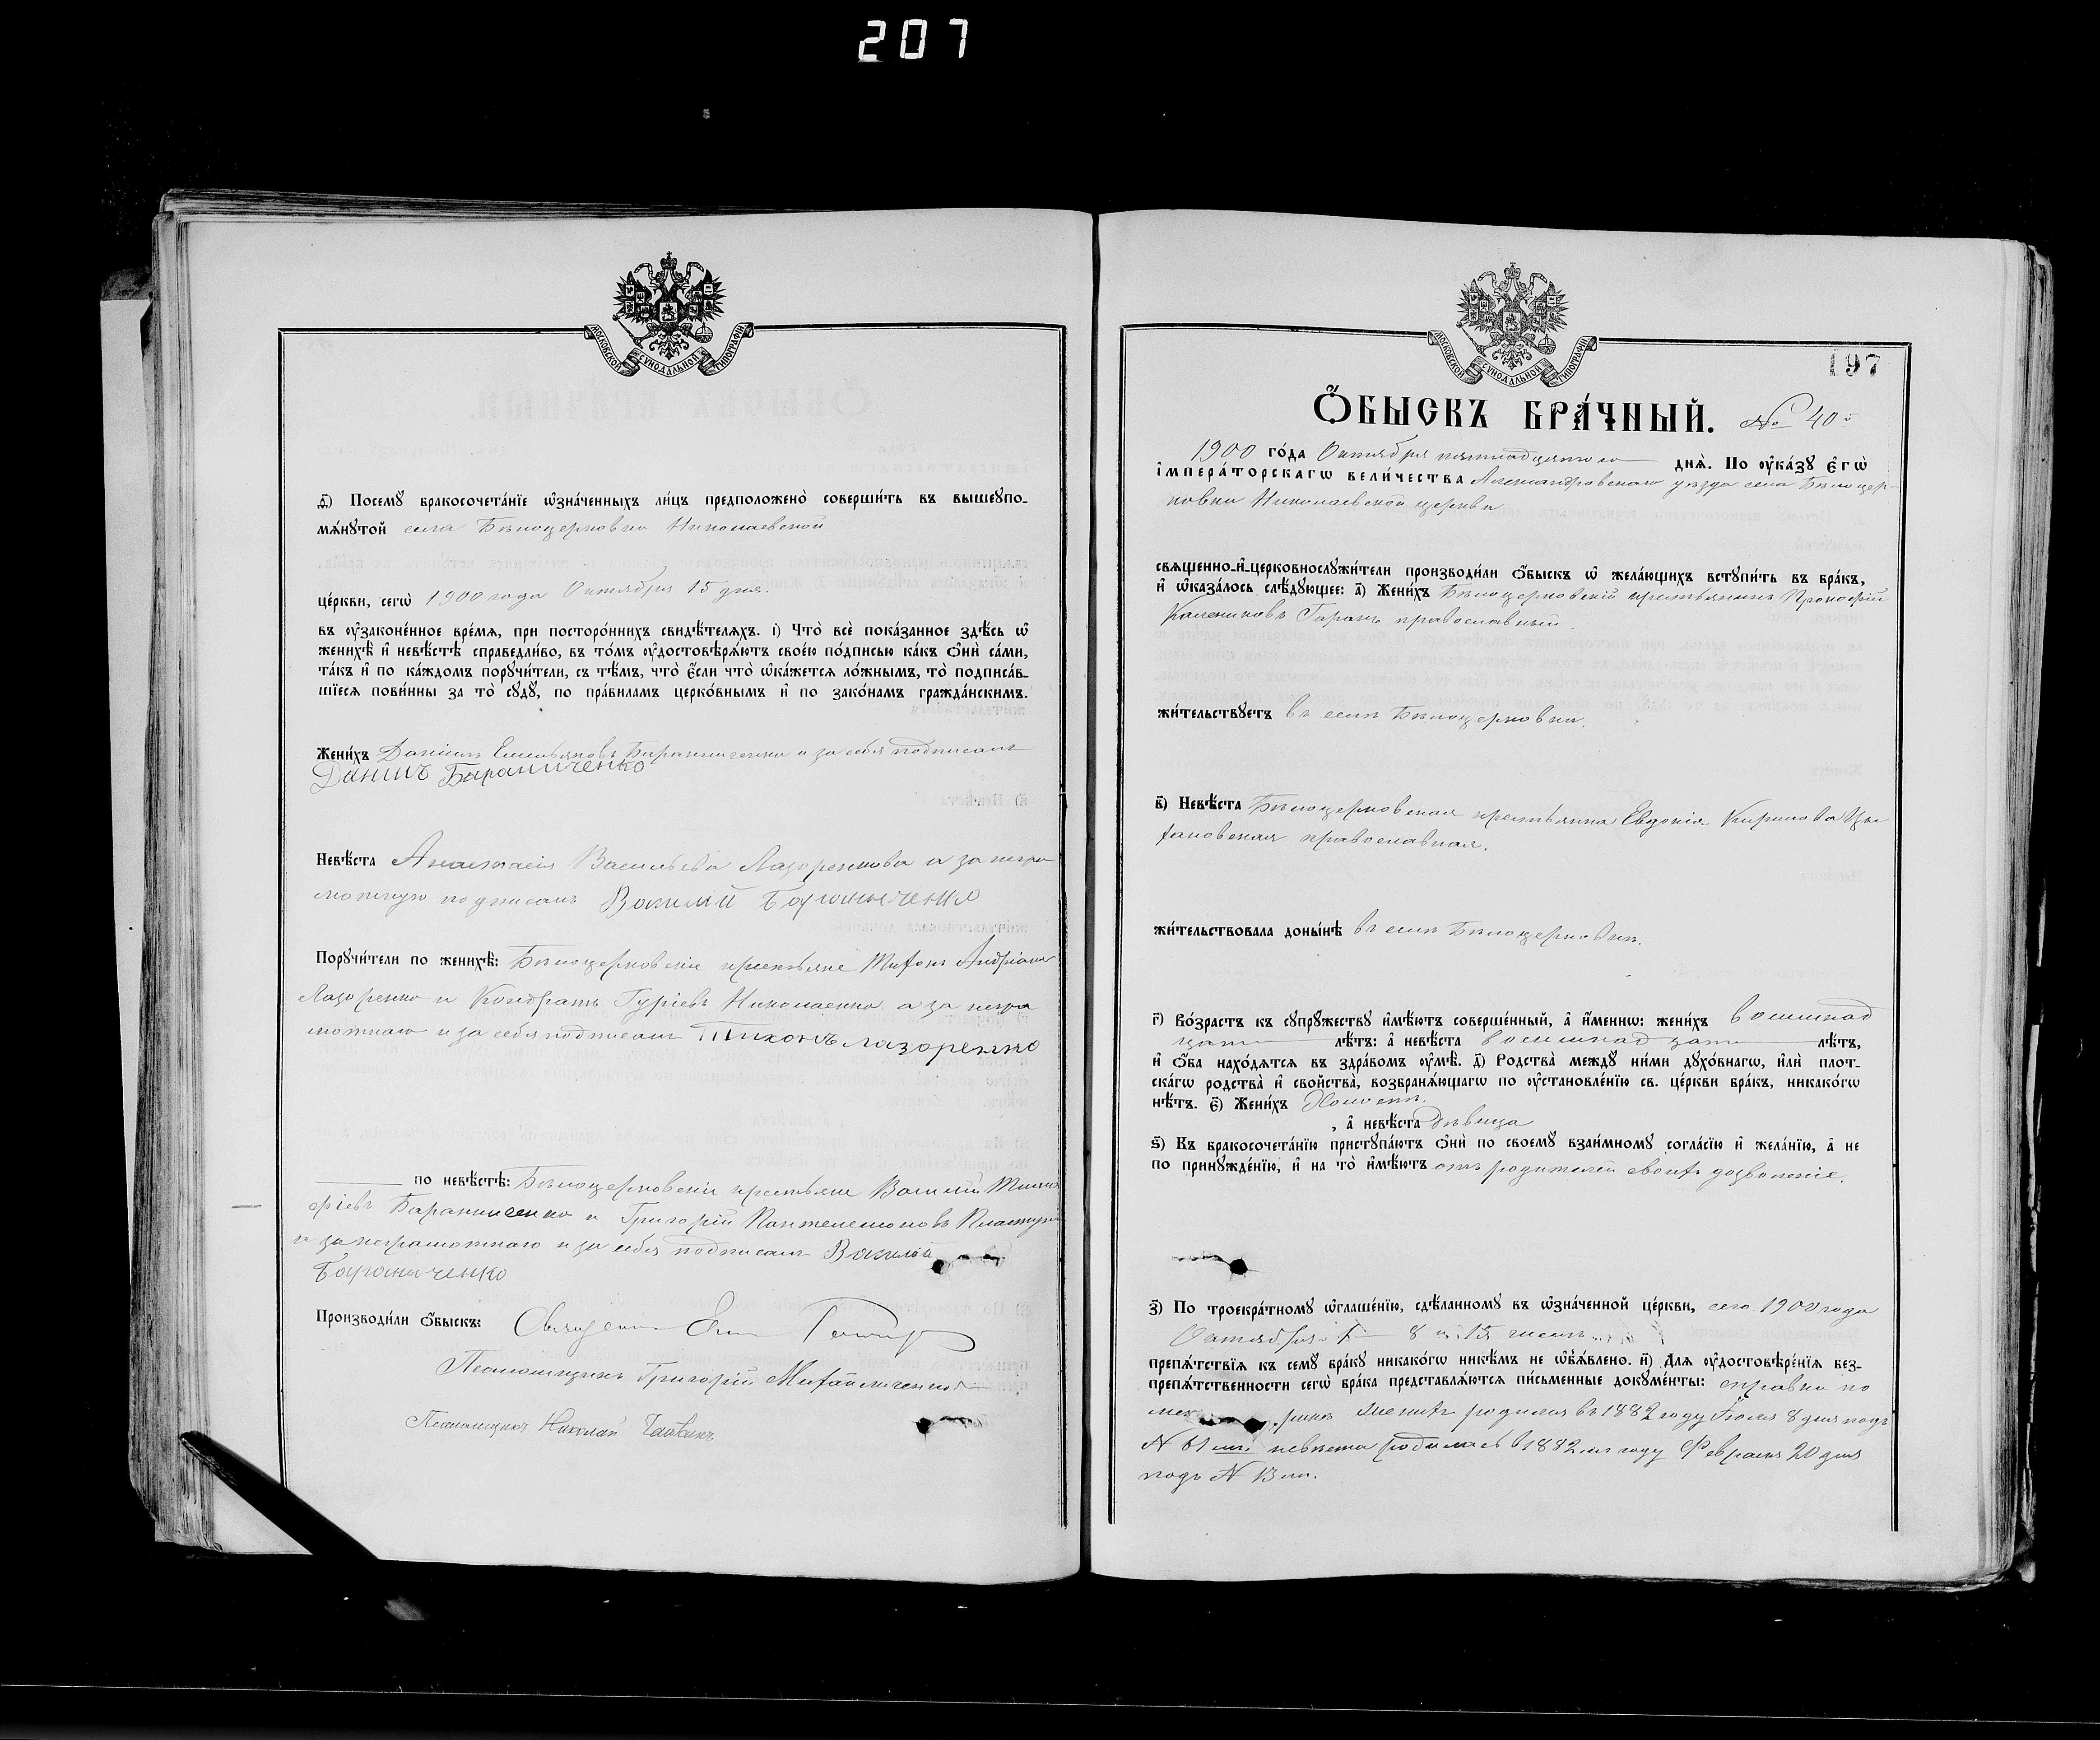 207
МОСКОВСКОЙ СѴНОДАЛЬНОЙ ТИПОГРАФІИ
ѳ҃) Посемꙋ бракосочета́нїе ѡ҆зна́ченныхъ ли́цъ предположено̀ соверши́ть въ вышеꙋпо-
мѧ́нꙋтой села Бѣлоцерковки Николаевской
це́ркви, сегѡ̀ 1900 года Октября 15 дня.
въ ᲂу҆законе́нное вре́мѧ, при посторо́ннихъ свидѣ́телѧхъ. і҃) Что̀ всѐ пока́занное здѣ́сь ѡ҆
женихѣ̀ и҆ невѣ́стѣ справедли́во, въ то́мъ ᲂу҆достовѣрѧ́ютъ свое́ю по́дписью ка́къ ѻ҆нѝ са́ми,
та́къ и҆ по ка́ждомъ порꙋчи́тели, съ тѣ́мъ, что̀ є҆́сли что̀ ѡ҆ка́жетсѧ ло́жнымъ, то̀ подписа́в-
шїесѧ пови́нны за то̀ сꙋдꙋ̀, по пра́виламъ церко́внымъ и҆ по зако́намъ гражда́нскимъ.
Жени́хъ Даніилъ Емельяновъ Бараниченко и за себя подписалъ
Данилъ Бараниченко
Невѣ́ста Анастасія Васильева Лазоренкова а за негра
мотную подписалъ Василій Бараниченко
Порꙋчи́тели по женихѣ̀: Бѣлоцерковскіе крестьяне Тихонъ Андріановъ
Лазоренко и Кондратъ Гуріевъ Николаенко а за негра
мотнаго и за себя подписалъ Тихонъ Лазоренко
по невѣ́стѣ: Бѣлоцерковскіе крестьяне Василій Тимо
фіевъ Бараниченко и Григорій Пантелемоновъ
а за неграмотнаго и за себя подписалъ Василій
Бараниченко
Производи́ли ѻ҆́быскъ: Священникъ
Псаломщикъ Григорій Михайличенко
Псаломщикъ Николай
МОСКОВСКОЙ СѴНОДАЛЬНОЙ ТИПОГРАФІИ
197
Ѻ҆́БЫСКЪ БРА́ЧНЫЙ. № 40й
1900 го́да Октября пятнадцатого днѧ̀. По ᲂу҆ка́зꙋ Є҆гѡ̀
І҆мпера́торскагѡ вели́чества Александровскаго уѣзда села Бѣлоцер-
ковки Николаевской церкви
свѧщенно-и҆-церковнослꙋжи́тели производи́ли ѻ҆́быскъ ѡ҆ жела́ющихъ встꙋпи́ть въ бра́къ,
и҆ ѡ҆каза́лось слѣ́дꙋющее: а҃) Жени́хъ Бѣлоцерковскій крестьянинъ Прокофій
Калениковъ Гаранъ православный.
жи́тельствꙋетъ въ селѣ Бѣлоцерковки.
в҃) Невѣ́ста Бѣлоцерковская крестьянка Евдокія Кирилова Цы
православная.
жи́тельствовала доны́нѣ въ селѣ Бѣлоцерковки.
г҃) Во́зрастъ къ сꙋпрꙋ́жествꙋ и҆мѣ́ютъ соверше́нный, а҆ и҆́меннѡ: жени́хъ восемнад
цати лѣ́тъ: а҆ невѣ́ста восемнадцати лѣ́тъ,
и҆ ѻ҆́ба нахо́дѧтсѧ въ здра́вомъ ᲂу҆мѣ̀. д҃) Родства̀ междꙋ̀ ни́ми дꙋхо́внагѡ, и҆лѝ плот-
ска́гѡ родства̀ и҆ свойства̀, возбранѧ́ющагѡ по ᲂу҆становле́нїю св. це́ркви бра́къ, никако́гѡ
нѣ́тъ. є҃) Жени́хъ Холостъ.
, а҆ невѣ́ста Дѣвица
ѕ҃) Къ бракосочета́нїю пристꙋпа́ютъ ѻ҆нѝ по своемꙋ̀ взаи́мномꙋ согла́сїю и҆ жела́нїю, а҆ не
по принꙋжде́нїю, и҆ на то̀ и҆мѣ́ютъ отъ родителей своихъ дозволеніе.
з҃) По троекра́тномꙋ ѡ҆глаше́нїю, сдѣ́ланномꙋ въ ѡ҆зна́ченной це́ркви, сего 1900 года
Октября 1 8 и 15 чиселъ
препѧ́тствїѧ къ семꙋ̀ бра́кꙋ никако́гѡ никѣ́мъ не ѡ҆б̾ѧ́влено. и҃) Длѧ ᲂу҆достовѣре́нїѧ без-
препѧ́тственности сегѡ̀ бра́ка представлѧ́ютсѧ пи́сьменные докꙋме́нты: справка по
мет рикѣ Женихъ родился въ 1882 году Іюля 8 дня подъ
N 61 мъ невѣста родилась въ 1882 мъ году Февраля 20 дня
подъ N 13 мъ.